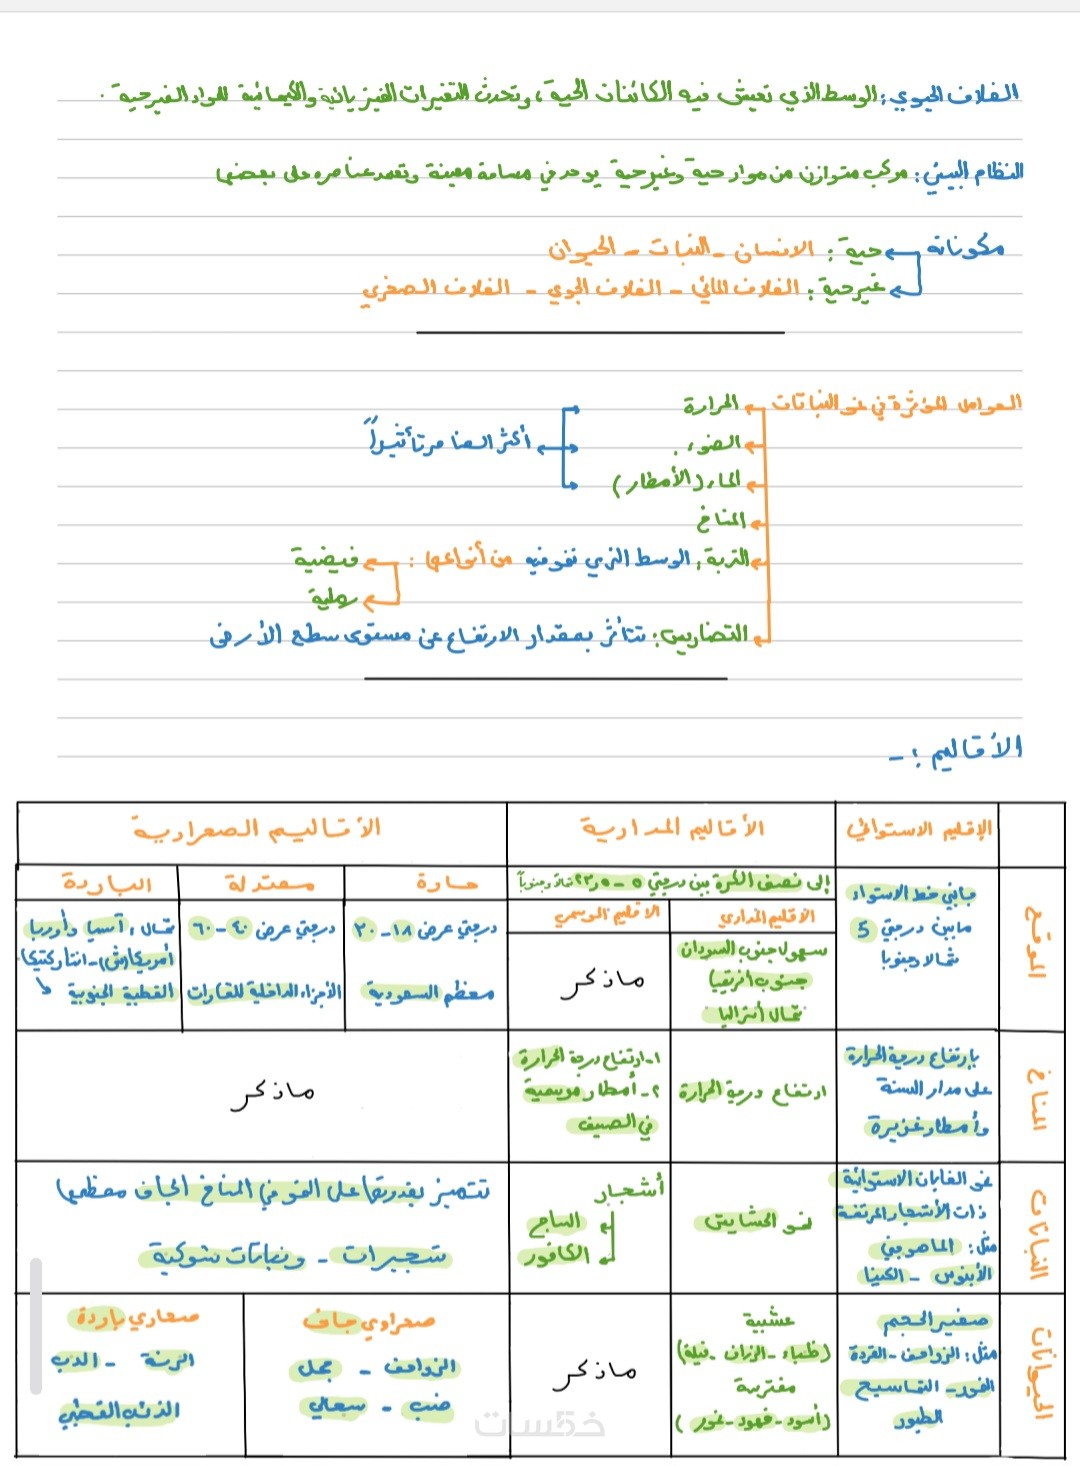 الغلاف الحيوي: الوسط الذي تعيش فيه الكائنات الحية، وتحدث التغيرات الفيزيائية والكيمائية للمواد الغيرحية.
النظام البيئي: مركب متوازن من مواد حية وغيرحية يوجد في مساحة معينة وتعتمد عناصره على بعضها
مكوناته
حية: الانسان - النبات - الحيوان
غيرحية: الغلاف المائي - الغلاف الجوي - الغلاف الصخري
العوامل المؤثرة في نمو النباتات
الحرارة
الضوء.
الماء (الأمطار)
أكثر العناصر تأثيراً
المناخ
التربة: الوسط الذي تنمو فيه من أنواعها: فيضية
رملية
التضاريس: تتأثر بمقدار الارتفاع عن مستوى سطح الأرض
الأقاليم :-
الإقليم الاستوائي الأقاليم المدارية الأقاليم الصحراوية
الموقع
جانبي خط الاستواء
مابين درجتي 5
شمالا وجنوبا
إلى نصف الكرة بين درجتي ٥ - ٢٣٫٥ شمالاً وجنوباً
الاقليم المداري
سهول جنوب السودان
جنوب افريقيا
شمال أستراليا
الاقليم الموسمي
ماذكر
حارة
درجتي عرض ١٨ - ٣٠
معظم السعودية
معتدلة
درجتي عرض ٤٠ - ٦٠
الأجزاء الداخلية للقارات
الباردة
شمال: آسيا وأوربا
أمريكا(ش) - انتاركتيكا
القطبية الجنوبية
المناخ
بإرتفاع درجة الحرارة
على مدار السنة
وأمطار غزيرة
ارتفاع درجة الحرارة
١- ارتفاع درجة الحرارة
٢- أمطار موسمية
في الصيف
ماذكر
النباتات
نمو الغابات الاستوائية
ذات الأشجار المرتفعة
مثل: الماهوجني
الأبنوس - الكينا
نمو الحشايش
أشجار
الساج
الكافور
تتميز بقدرتها على النمو في المناخ الجاف معظمها
شجيرات - ونباتات شوكية
الحيوانات
صغير الحجم
مثل: الزواحف - القردة
النمور - التماسيح
الطيور
عشبية
(ظباء - الزراف - فيلة)
مفترسة
(أسود - فهود - نمور)
ماذكر
صحراوي جاف
الزواحف - جمل
ضب - سحالي
صحاري باردة
الرنة - الدب
الذئب القطبي
خمسات